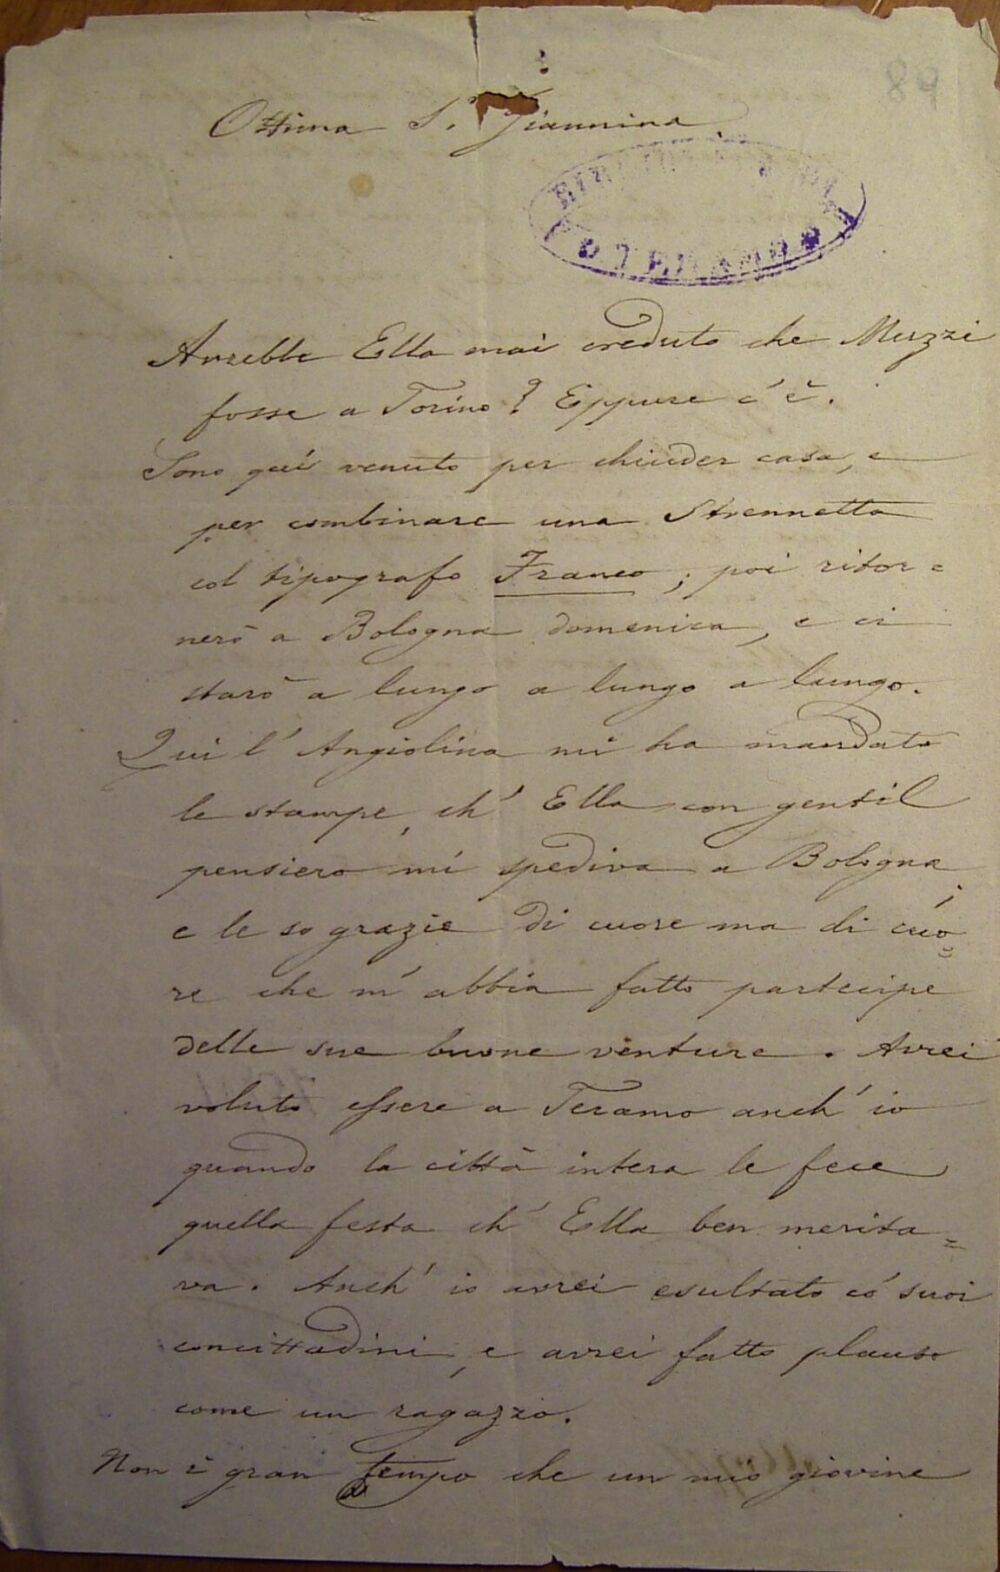 89
Ottima S. Giannina
BIBLIO
TERAMO
Avrebbe Ella mai creduto che Muzzi
fosse a Torino? Eppure c'è.
Sono quì venuto per chiuder casa, e
per combinare una Strennetta
col tipografo Franco; poi ritor=
nerò a Bologna domenica, e ci
starò a lungo a lungo a lungo.
Qui l'Angiolina mi ha mandato
le stampe, ch'Ella con gentil
pensiero mi spediva a Bologna;
e le so grazie di cuore ma di cuo=
re che m'abbia fatto partecipe
delle sue buone venture. Avrei
voluto essere a Teramo anch'io
quando la città intera le fece
quella festa ch'Ella ben merita=
va. Anch'io avrei esultato co' suoi
concittadini, e avrei fatto plauso
come un ragazzo.
Non è gran tempo che un mio giovine